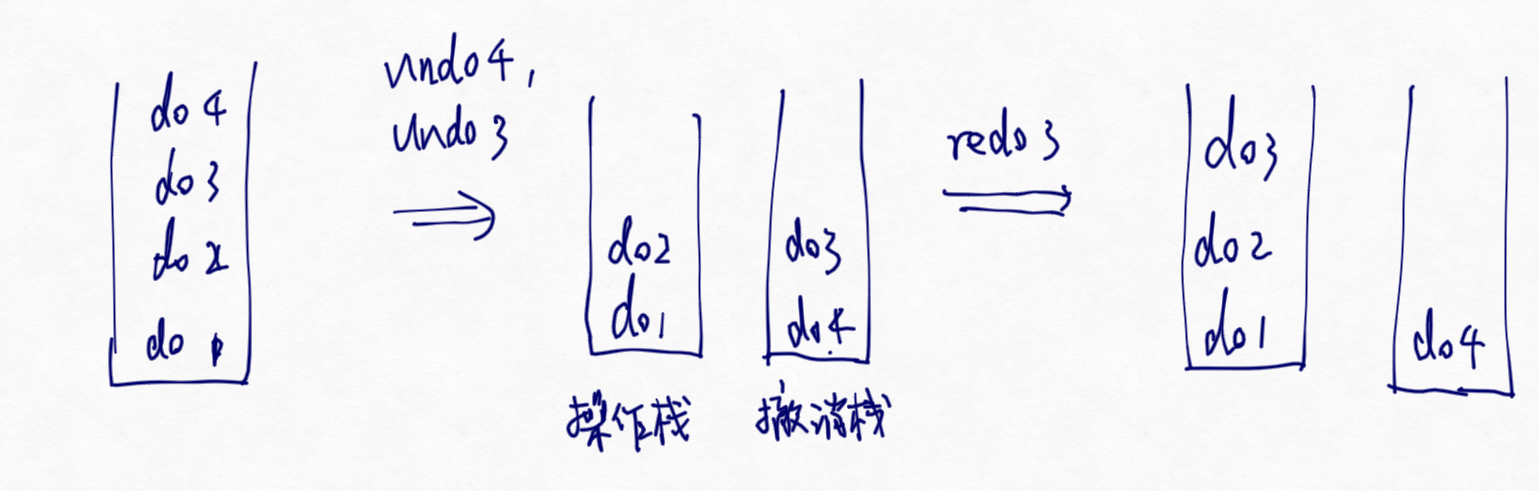 do 4
do 3
do 2
do 1
undo 4,
undo 3
do 2
do 1
操作栈
do 3
do 4
撤消栈
redo 3
do 3
do 2
do 1
do 4